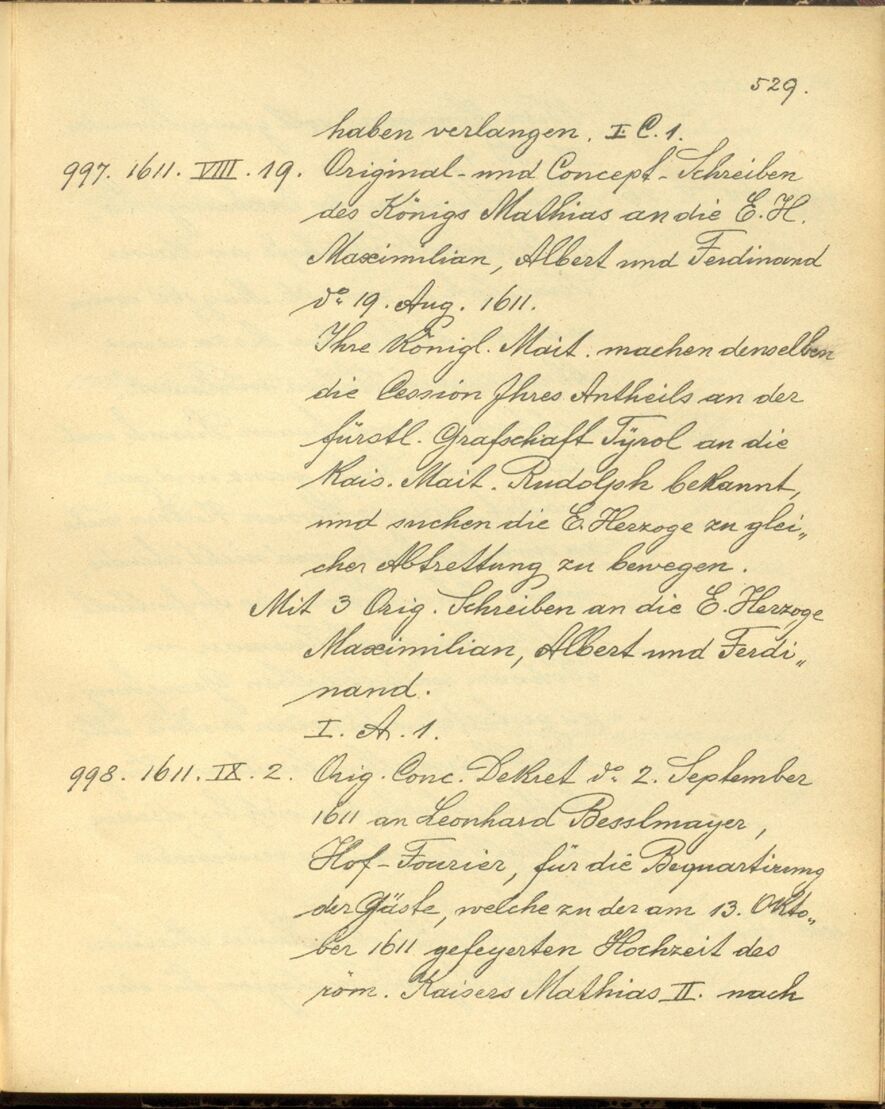 529.
haben verlangen. I C. 1.
997. 1611. VIII. 19. Original- und Concept-Schreiben
des Königs Mathias an die E. H.
Maximilian, Albert und Ferdinand
do 19. Aug. 1611.
Ihre Königl. Mait. machen denselben
die Cession Ihres Antheils an der
fürstl. Grafschaft Tÿrol an die
Kais. Mait. Rudolph bekannt,
und suchen die E. Herzoge zu glei„
cher Abtrettung zu bewegen.
Mit 3 Orig. Schreiben an die E. Herzoge
Maximilian, Albert und Ferdi„
nand.
I. A. 1.
998. 1611. IX. 2. Orig. Conc. Dekret do 2. September
1611 an Leonhard Besslmayer,
Hof-Fourier, für die Bequartirung
der Gäste, welche zu der am 13. Okto„
ber 1611 gefeyerten Hochzeit des
röm. Kaisers Mathias II. nach